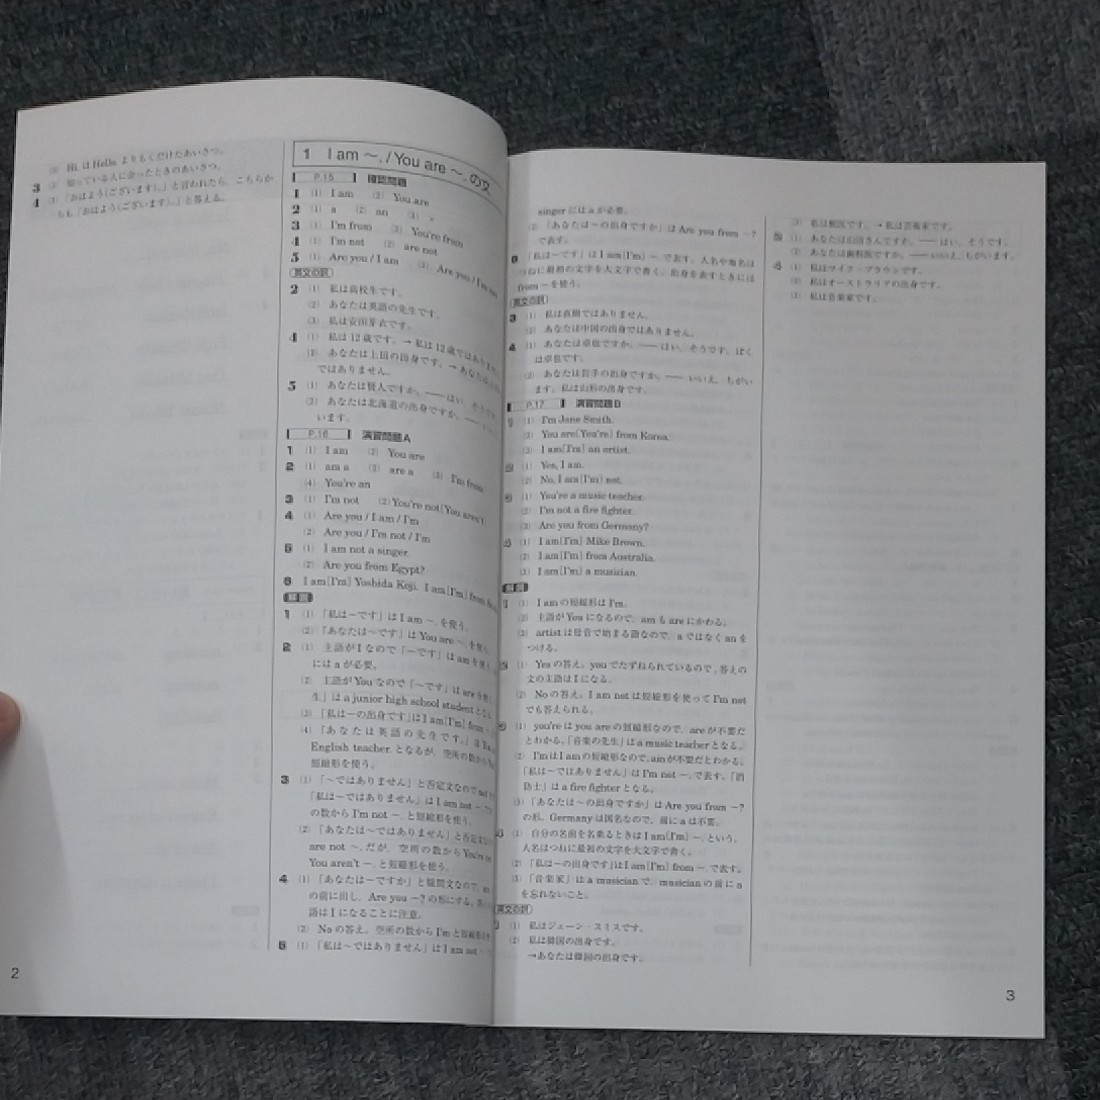 (3) Hi. は Hello. よりもくだけたあいさつ。
3 (2) 知っている人に会ったときのあいさつ。
4 (3) 「おはよう(ございます)。」と言われたら、こちらか
らも「おはよう(ございます)。」と答える。
2
1 I am ～. / You are ～. の文
P.15 確認問題
1 (1) I am (2) You are
2 (1) a (2) an (3) ×
3 (1) I'm from (2) You're from
4 (1) I'm not (2) are not
5 (1) Are you / I am (2) Are you / I'm not
英文の訳
2 (1) 私は高校生です。
(2) あなたは英語の先生です。
(3) 私は安田芽衣です。
4 (1) 私は12歳です。→私は12歳ではありま
(2) あなたは上田の出身です。→あなたは
ではありません。
5 (1) あなたは賢人ですか。── はい、そうです
(2) あなたは北海道の出身ですか。── いい
います。
P.16 演習問題A
1 (1) I am (2) You are
2 (1) am a (2) are a (3) I'm from
(4) You're an
3 (1) I'm not (2) You're not[You aren't]
4 (1) Are you / I am / I'm
(2) Are you / I'm not / I'm
5 (1) I am not a singer.
(2) Are you from Egypt?
6 I am[I'm] Yoshida Koji. I am[I'm] from
解説
1 (1) 「私は～です」は I am ～. を使う。
(2) 「あなたは～です」は You are ～. を使う。
2 (1) 主語が I なので「～です」は am を使
には a が必要。
(2) 主語が You なので「～です」は are を
生」は a junior high school student とな
(3) 「私は～の出身です」は I am[I'm] from
(4) 「あなたは英語の先生です。」は
English teacher. となるが、空所の数から
短縮形を使う。
3 (1) 「～ではありません」と否定文なので
「私は～ではありません」は I am not ～
の数から I'm not ～. と短縮形を使う。
(2) 「あなたは～ではありません」と否定文
are not ～. だが、空所の数から You're
You aren't ～. と短縮形を使う。
4 (1) 「あなたは～ですか」と疑問文なので、
の前に出し、Are you ～? の形にする。
語は I になることに注意。
(2) No の答え。空所の数から I'm と短縮形
5 (1) 「私は～ではありません」は I am not ～.
singer には a が必要。
(2) 「あなたは～の出身ですか」は Are you from ～?
で表す。
6 「私は～です」は I am[I'm] ～. で表す。人名や地名は
つねに最初の文字を大文字で書く。出身を表すときには
from ～ を使う。
英文の訳
3 (1) 私は直樹ではありません。
(2) あなたは中国の出身ではありません。
4 (1) あなたは卓也ですか。── はい、そうです。ぼく
は卓也です。
(2) あなたは岩手の出身ですか。── いいえ、ちがい
ます。私は山形の出身です。
P.17 演習問題B
1 (1) I'm Jane Smith.
(2) You are[You're] from Korea.
(3) I am[I'm] an artist.
2 (1) Yes, I am.
(2) No, I am[I'm] not.
3 (1) You're a music teacher.
(2) I'm not a fire fighter.
(3) Are you from Germany?
4 (1) I am[I'm] Mike Brown.
(2) I am[I'm] from Australia.
(3) I am[I'm] a musician.
解説
1 (1) I am の短縮形は I'm。
(2) 主語が You になるので、am も are にかわる。
(3) artist は母音で始まる語なので、a ではなく an を
つける。
2 (1) Yes の答え。you でたずねられているので、答えの
文の主語は I になる。
(2) No の答え。I am not は短縮形を使って I'm not
でも答えられる。
3 (1) you're は you are の短縮形なので、are が不要だ
とわかる。「音楽の先生」は a music teacher となる。
(2) I'm は I am の短縮形なので、am が不要だとわかる。
「私は～ではありません」は I'm not ～. で表す。「消
防士」は a fire fighter となる。
(3) 「あなたは～の出身ですか」は Are you from ～?
の形。Germany は国名なので、前に a は不要。
4 (1) 自分の名前を名乗るときは I am[I'm] ～. という。
人名はつねに最初の文字を大文字で書く。
(2) 「私は～の出身です」は I am[I'm] from ～. で表す。
(3) 「音楽家」は a musician で、musician の前に a
を忘れないこと。
英文の訳
1 (1) 私はジェーン・スミスです。
(2) 私は韓国の出身です。
→あなたは韓国の出身です。
(3) →私は芸術家です。
2 (1) あなたは山田さんですか。── はい、そうです。
(2) あなたは歯科医ですか。── いいえ、ちがいます。
4 (1) 私はマイク・ブラウンです。
(2) 私はオーストラリアの出身です。
(3) 私は音楽家です。
3